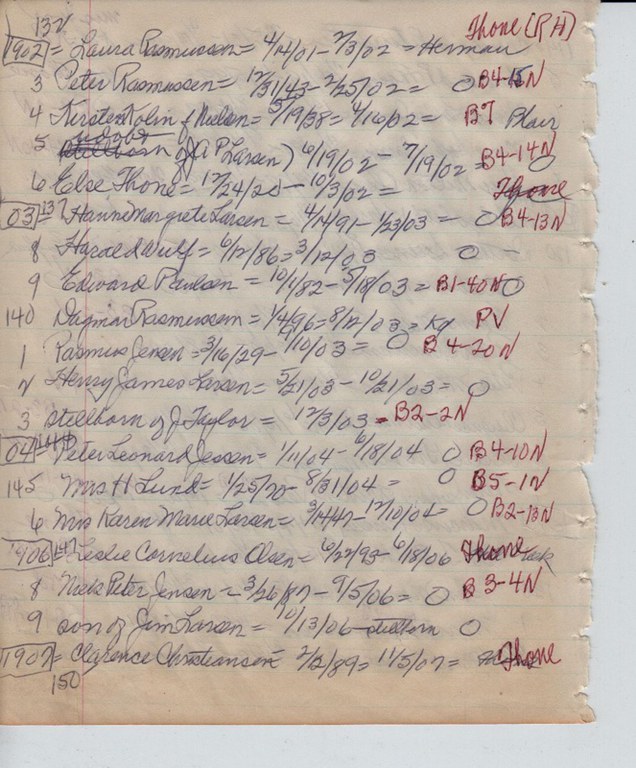 132 Thone (PH)
1902 = Laura Rasmussen = 4/14/01 - 2/3/02 = Herman
3 Peter Rasmussen = 12/31/43 - 2/25/02 = O B4-15N
4 Kersten Kolin f Nielsen = 5/19/38 = 4/16/02 = B7 Blair
5 of (A P Larsen) 6/19/02 - 7/19/02 = B4-14N O
6 Else Thone = 12/24/20 - 10/3/02 = Thone
03 137 Hanne Margrete Larsen = 4/14/91 - 1/23/03 = O B4-13N
8 Harold Wulf = 6/12/86 = 3/12/03 O -
9 Edward Paulsen = 10/1/82 - 5/18/03 = B1-40N O
140 Dagmar Rasmussen = 1/4/96 = 8/12/03 = Kg PV
1 Rasmus Jensen = 3/16/29 - 1/10/03 = O B4-20N
2 Henry James Larsen = 5/21/03 - 10/21/03 = O
3 Stillborn of J Taylor = 12/3/03 - B2-2N
04 144 Peter Leonard Jessen = 1/11/04 - 6/18/04 O B4-10N
145 Mrs H Lund = 1/25/70 - 8/31/04 = O B5-1N
6 Mrs Karen Marie Larsen = 3/14/47 - 12/10/04 = O B2-13N
1906 147 Leslie Cornelius Olsen = 6/22/93 - 6/18/06 Thone
8 Niels Peter Jensen - 3/26/87 - 9/5/06 = O B3-4N
9 son of Jim Larsen = 10/13/06 - stillborn O
1907 = Clarence Christiansen - 2/2/89 = 11/5/07 = Thone
150